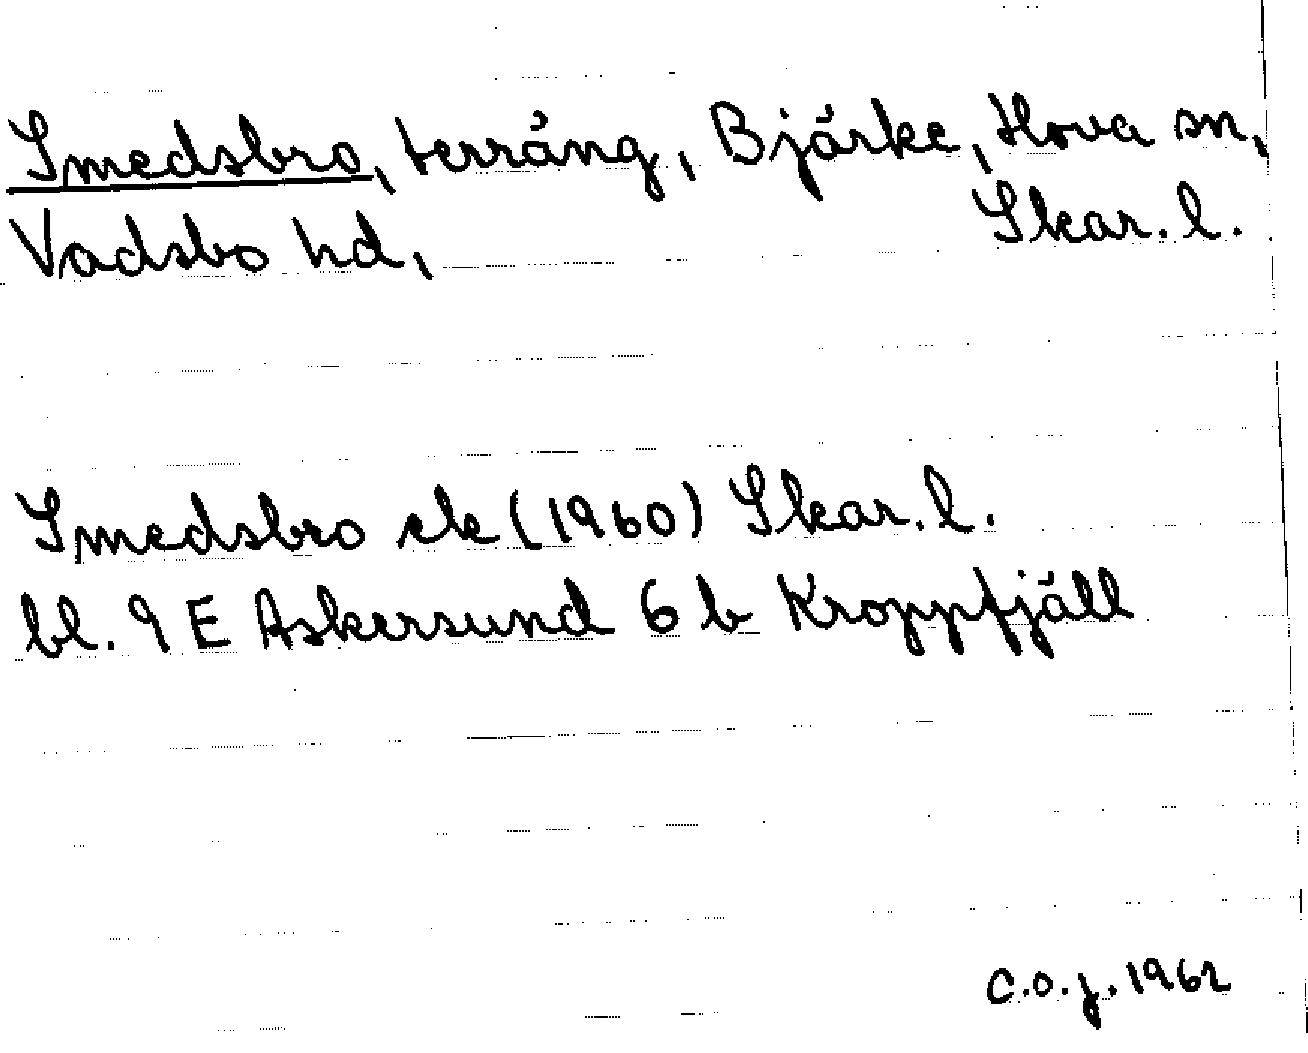 Smedsbro, terräng, Bjärke, Hova sn,
Vadsbo hd, Skar. l.
Smedsbro ek (1960) Skar. l.
bl. 9 E Askersund 6 b Kroppfjäll
C.O.J. 1962